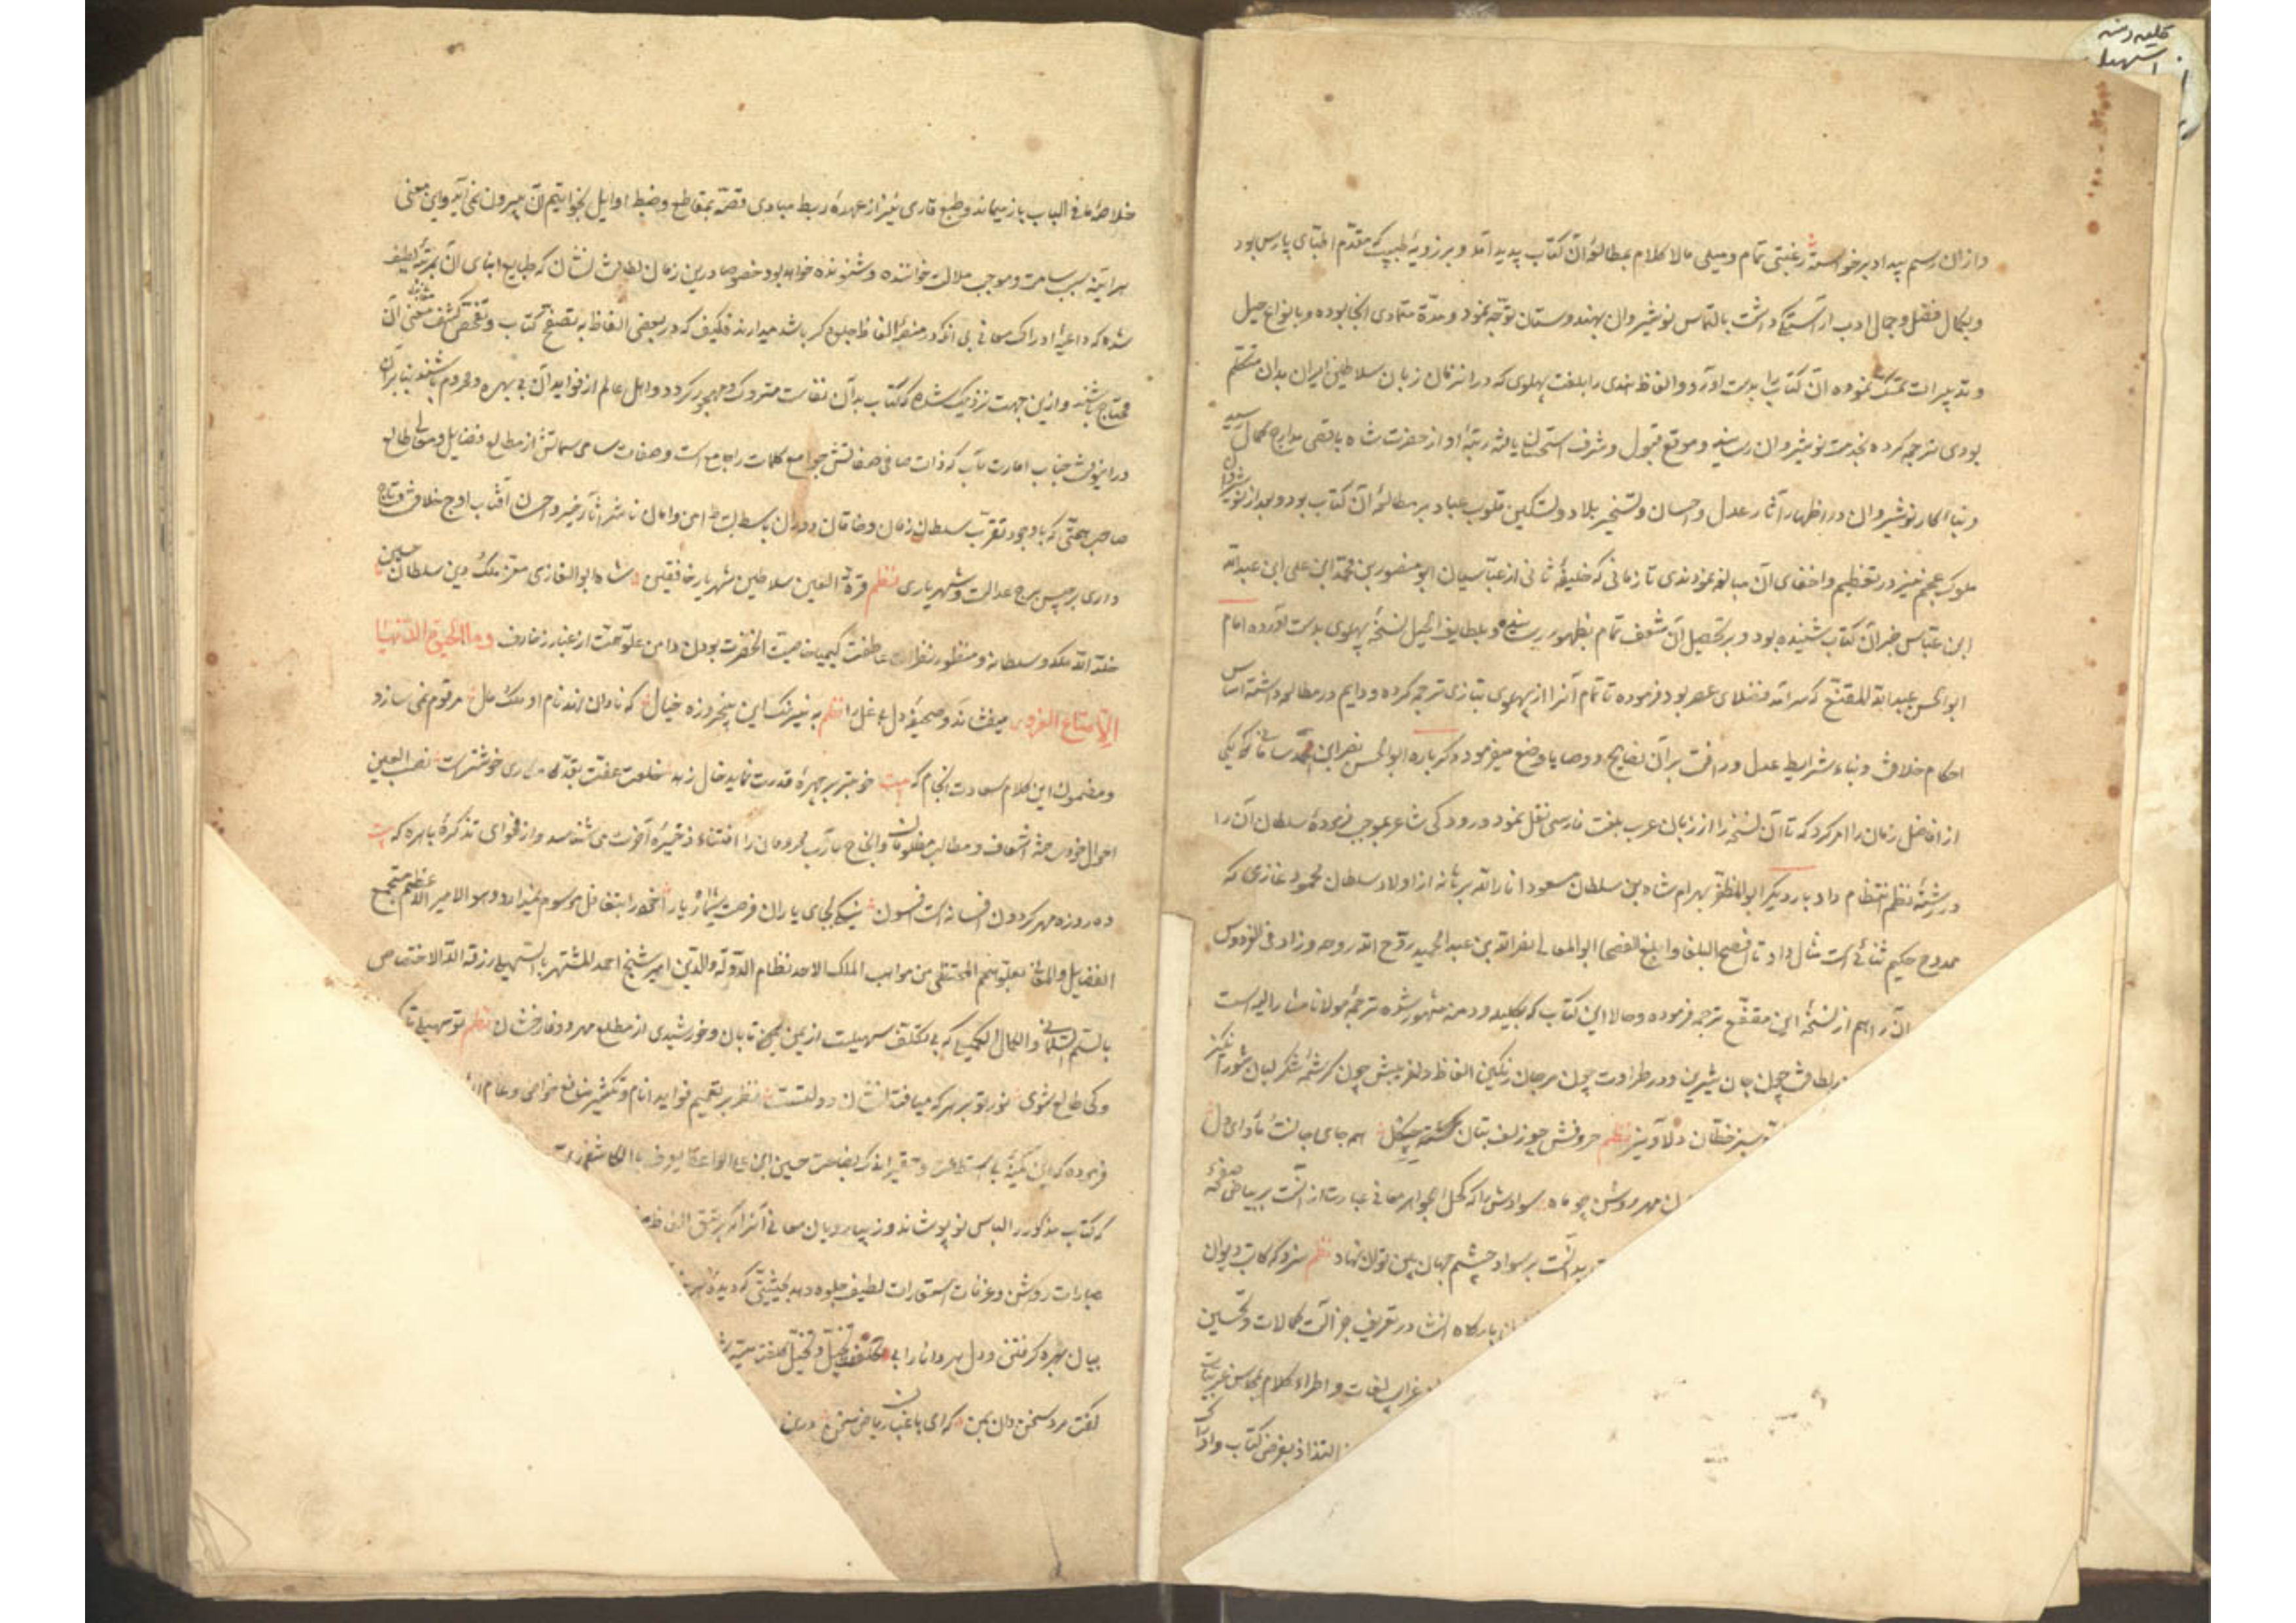 کلیله دمنه
و از ان رسم پیداد برخواسته رغبتی تمام و میلی مالا کلام بمطالعهٔ آن کتاب پدید آمد و برزویهٔ طبیب که مقدّم اطبّای پارس بود
و بکمال فضل و جمال ادب آراستگی داشت بالتماس نوشیروان بهندوستان توجّه نمود و مدّة متمادی انجا بوده و بانواع حیل
و تدبیرات تمسّک نموده آن کتاب را بدست آورد و الفاظ هندی را بلغت پهلوی که در انزمان زبان سلاطین ایران بدان متکلم
بودی ترجمه کرده بخدمت نوشیروان رسانید و موقع قبول و شرف استحسان یافته رتبهٔ او از حضرت شاه باقصی مدارج کمال رسید
و بناء کار نوشیروان در اظهار آثار عدل و احسان و تسخیر بلاد و تسکین قلوب عباد بر مطالعهٔ آن کتاب بود و بعد از نوشیروان
ملوک عجم نیز در تعظیم و اخفای آن مبالغه نمودندی تا زمانی که خلیفهٔ ثانی از عبّاسیان ابو منصور بن محمّد ابن علی ابن عبد الله
ابن عبّاس خبر آن کتاب شنیده بود و بر تحصیل آن شعف تمام بظهور رسانیده و بلطایف الحیل نسخهٔ پهلوی بدست آورده امام
ابو الحسن عبد الله المقنّع که سرامد فضلای عصر بود فرموده تا تمام آنرا از پهلوی بتازی ترجمه کرده و دایم در مطالعه داشته اساس
احکام خلافت و بناء شرایط عدل و رافت بر آن نصایح و وصایا وضع میفرمود و دیگر باره ابو الحسن نصر ابن احمد سامانی یکی
از افاضل زمان را امر کرد که تا آن نسخه را از زبان عرب بلغت فارسی نقل نمود و رودکی شاعر بموجب فرمودهٔ سلطان آن را
در رشتهٔ نظم انتظام داد بار دیگر ابو المظفر بهرام شاه بن سلطان مسعود انار الله برهانه از اولاد سلطان محمود غازی که
ممدوح حکیم ثنائی است مثال داد تا افصح البلغا و ابلغ الفصحا ابو المعالی نصر الله بن عبد الحمید روّح الله روحه و زاد فی الفردوس
آن را هم از نسخهٔ ابن مقفّع ترجمه فرموده و حالا این کتاب که بکلیله و دمنه مشهور شده ترجمهٔ مولانا مشار الیه است
لطافت چون جان شیرین و در طراوت چون مرجان رنگین الفاظ دلفریبش چون کرشمهٔ شکر لبان شورانگیز
سبز خطّان دلاویز نظم حروفش چو زلف بتان چکل همه جای جانست ماوای دل
مهر روشن چو ماه سوادش را که کحل الجواهر معانی عبارت از آنست بر بیاض صفحهٔ
بر سواد چشم جهان بین توان نهاد نظم سزد که کاتب دیوان
بارگاه انشا در تعریف جزالت کمالات و تحسین
غرایب لغات و اطراء کلام بمحاسن عربیات
التذاذ بغرض کتاب و ادراک
خلاصهٔ ما فی الباب باز میماند و طبع قاری نیز از عهدهٔ ربط مبادی قصّه بمقاطع و ضبط اوایل بخواتیم آن بیرون نمی آید و این معنی
هر آینه سبب سامت و موجب ملالت خواننده و شنونده خواهد بود خصوصا درین زمان لطافت نشان که طبایع ابنای آن بمرتبهٔ لطیف
شده که داعیهٔ ادراک معانی بی آنکه در منصّهٔ الفاظ جلوه گر باشد میدارند فکیف که در بعضی الفاظ به تصفّح کتاب و تفحّص کشف معنی آن
محتاج باشند و ازین جهت نزدیک شد که کتاب بدان نفاست متروک و مهجور گردد و اهل عالم از فواید آن بی بهره و محروم باشند بنابران
درین وقت جناب امارت مآب که ذات صافی صفاتش جوامع کلمات را جامع است و صفات سامی سماتش از مطالع فضایل و معالی طالع
صاحب همّتی که با وجود تقرّب سلطان زمان و خاقان دوران باسط بساط امن و امان ناشر آثار خیر و احسان آفتاب اوج خلافت و تاج
داری برجیس برج عدالت و شهریاری نظم قرة العین سلاطین شهریار خافقین شاه ابو الغازی معزّ ملک و دین سلطان حسین
خلّد الله ملکه و سلطانه و منظور نظر عاطفت کیمیا خاصیت آنحضرت بودن دامن علوّ همّت از غبار زخارف و ما الحیوة الدنیا
الّا متاع الغرور میفشاند و صحیفهٔ دل بی غل را نظم به نیرنگ این پنج روزه خیال که نادان نهد نام او ملک و مال مرقوم نمی سازد
و مضمون این کلام سعادت انجام که بیت خوبتر بر چهرهٔ قدرت نماید خال زهد خلعت عفت بقدّ کامکاری خوشترست نصب العین
احوال خود ساخته اسعاف مطالب مظلومان و انجاح مآرب محرومان را اقتناء ذخیرهٔ آخرت می شناسد و از فحوای تذکرهٔ باهره که بیت
ده روزه مهر کردون افسانه است و افسون نیکی بجای یاران فرصت شمار یارا خود را بتغافل موسوم نمیدارد و هو الامیر الاعظم مستجمع
الفضایل و المعالی بعلوّ الهمم المحتظی من مواهب الملک الاحد نظام الدّوله و الدّین امیر شیخ احمد المشتهر بالسّهیلی رزقه الله الاختصاص
بالسّلم السّلمانی و الکمال الکمیلی که بی تکلّف سهیلیست از یمن یمن تابان و خورشیدی از مطلع مهر و وفا رخشان نظم تو سهیلی تا
و کی طالع شوی نور تو بر هر که میافتد نشان دولتست نظر بر تعمیم فواید انام و تکثیر منافع خواص و عوام
فرموده که این کمینهٔ بی استطاعت و حقیر اندک بضاعت حسین ابن علی الواعظ المعروف بالکاشفی
که کتاب مذکور را لباس نو پوشاند و زیبا رویان معانی آنرا که بتتق الفاظ
عبارات روشن و غرفات استعارات لطیف جلوه دهد بحیثیّتی که دیدهٔ هر
بیان بهره گرفتن و دل هر دانا را بی تکلّف
گفت مرد سخن دان بمن که ای باغبان ریاض سخن درین